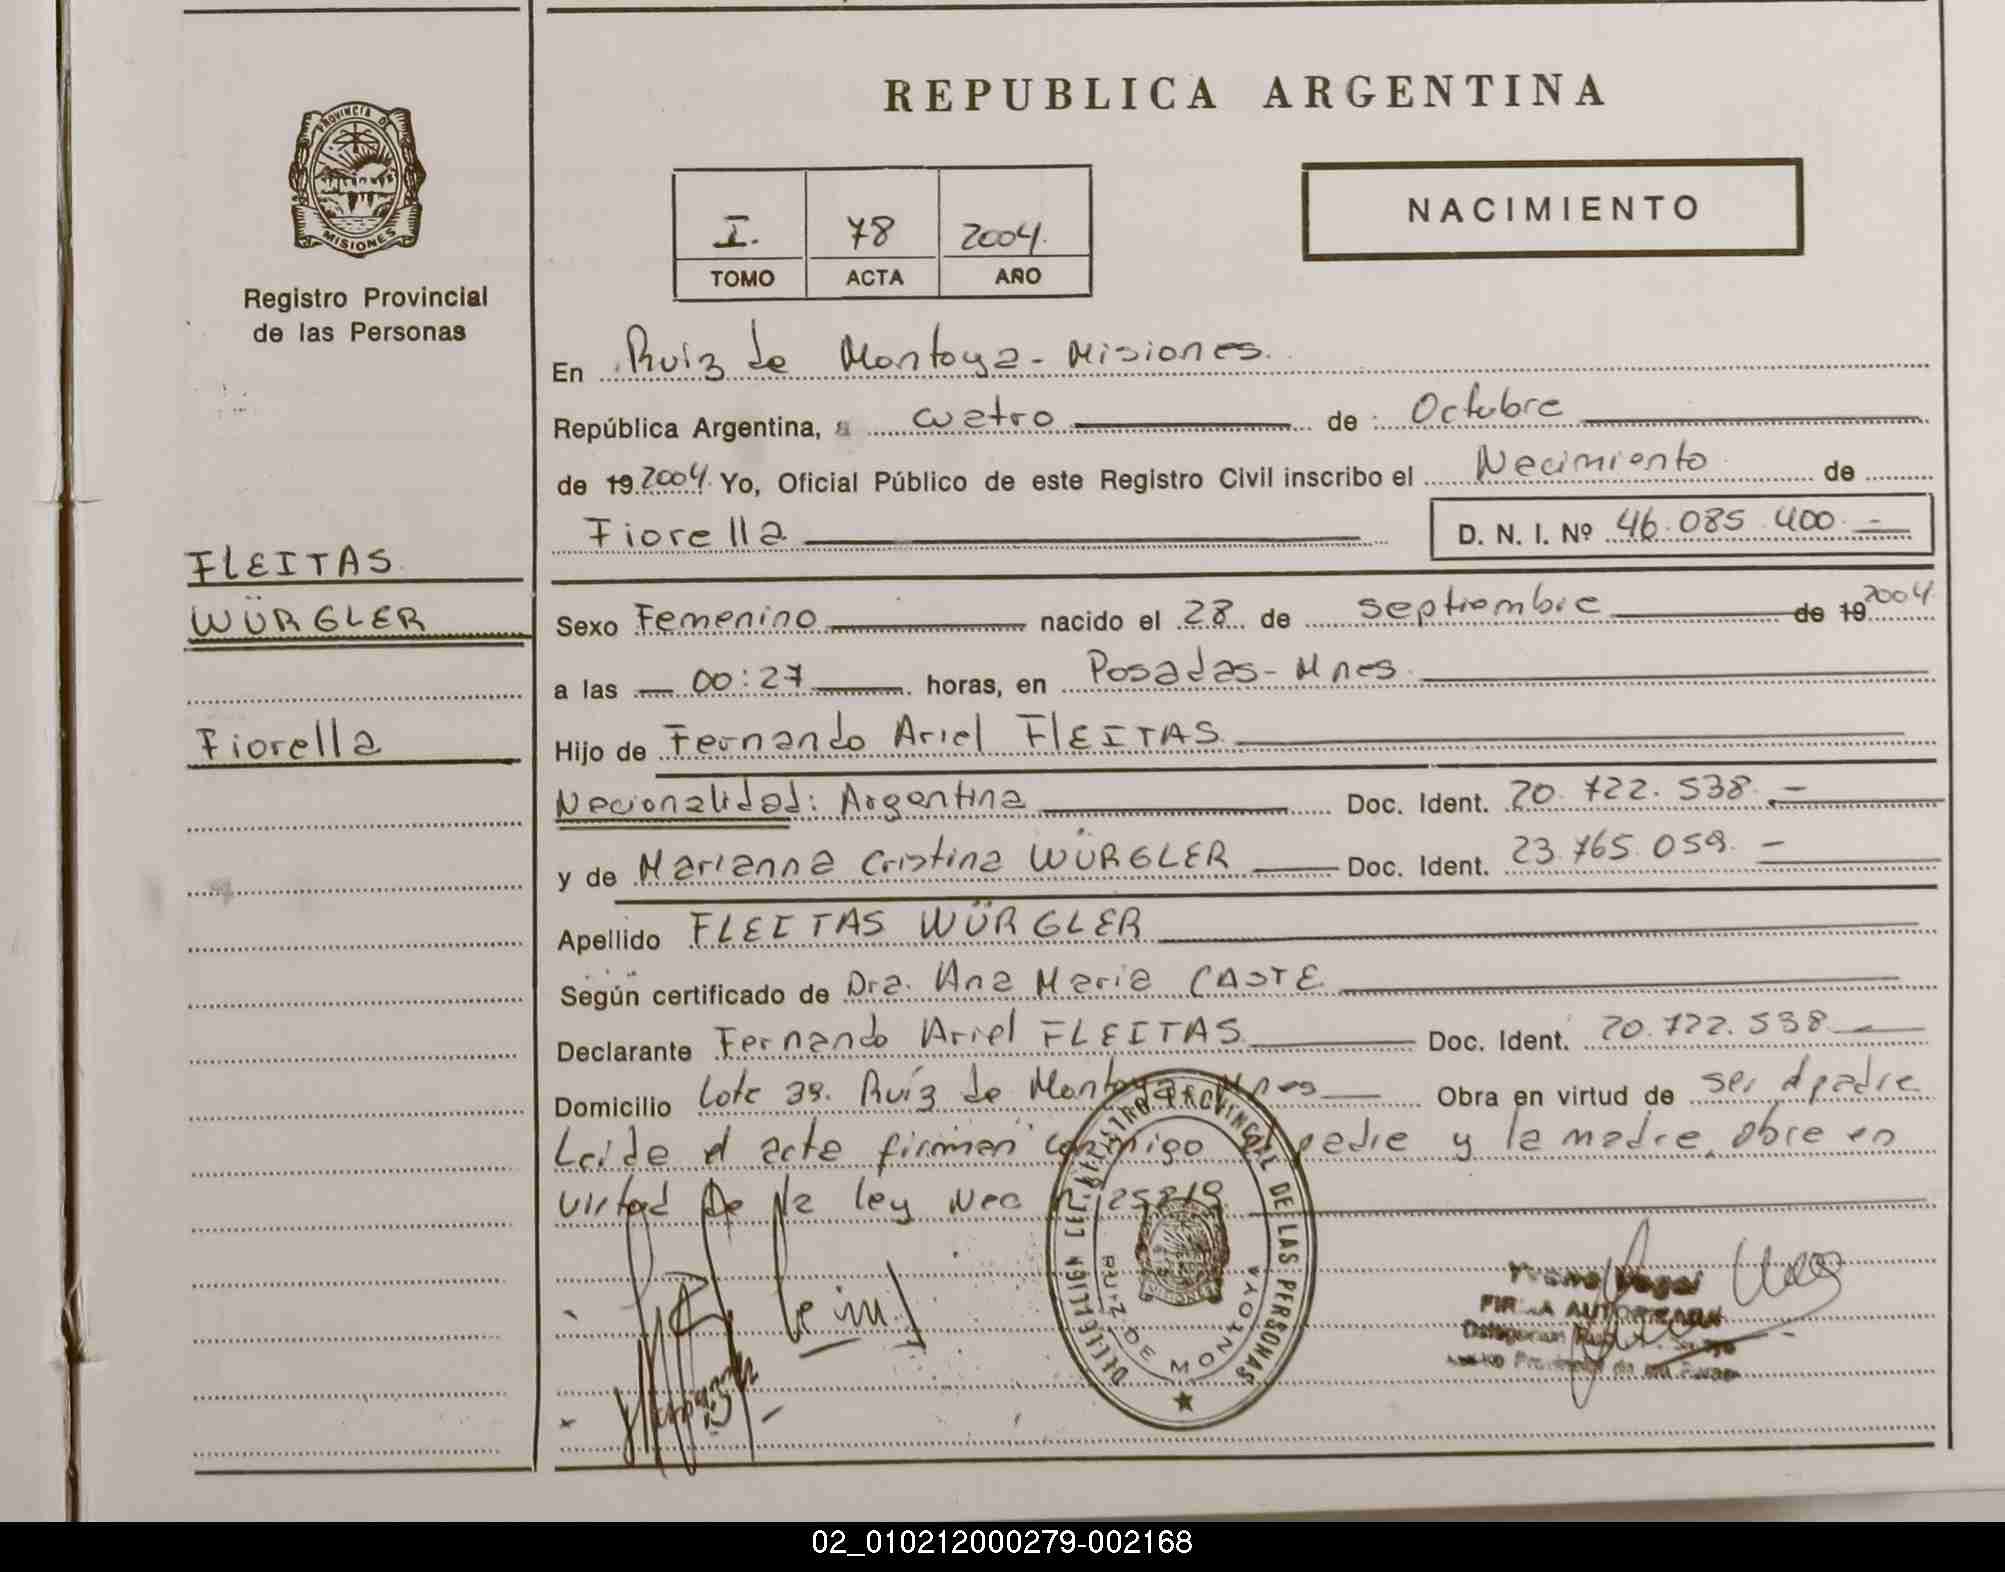 REPUBLICA ARGENTINA
PROVINCIA DE
MISIONES
Registro Provincial
de las Personas
I. 78 2004.
TOMO ACTA AÑO
NACIMIENTO
En Ruiz de Montoya - Misiones.
República Argentina, a cuatro de Octubre
de 19 2004. Yo, Oficial Público de este Registro Civil inscribo el Nacimiento de
Fiorella D. N. I. Nº 46.085.400.-
FLEITAS
WÜRGLER
Fiorella
Sexo Femenino nacido el 28 de septiembre de 19 2004.
a las 00:27 horas, en Posadas - Mnes.
Hijo de Fernando Ariel FLEITAS
Nacionalidad: Argentina Doc. Ident. 20.722.538.-
y de Marianna Cristina WÜRGLER Doc. Ident. 23.765.059.-
Apellido FLEITAS WÜRGLER
Según certificado de Dra. Ana Maria CASTE
Declarante Fernando Ariel FLEITAS Doc. Ident. 20.722.538.-
Domicilio Lote 39. Ruíz de Montoya - Mnes Obra en virtud de ser el padre
Leida el acta firman conmigo el padre y la madre, obra en
virtud de la ley Nac 25819
REGISTRO PROVINCIAL DE LAS PERSONAS
RUIZ DE MONTOYA
FIRMA AUTORIZADA
02_010212000279-002168